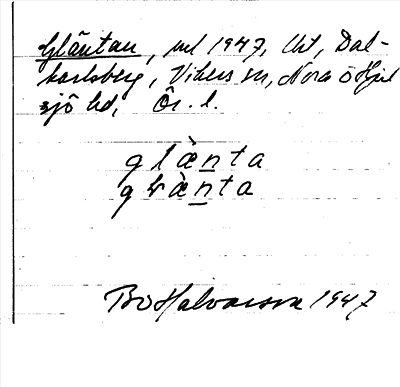 Gläntan, ml 1947, Ut, Dal-
karlsberg, Vikers sn, Nora o Hjul
sjö bd, Ör. l.
glànta
grànta
Bo Halvarson 1947